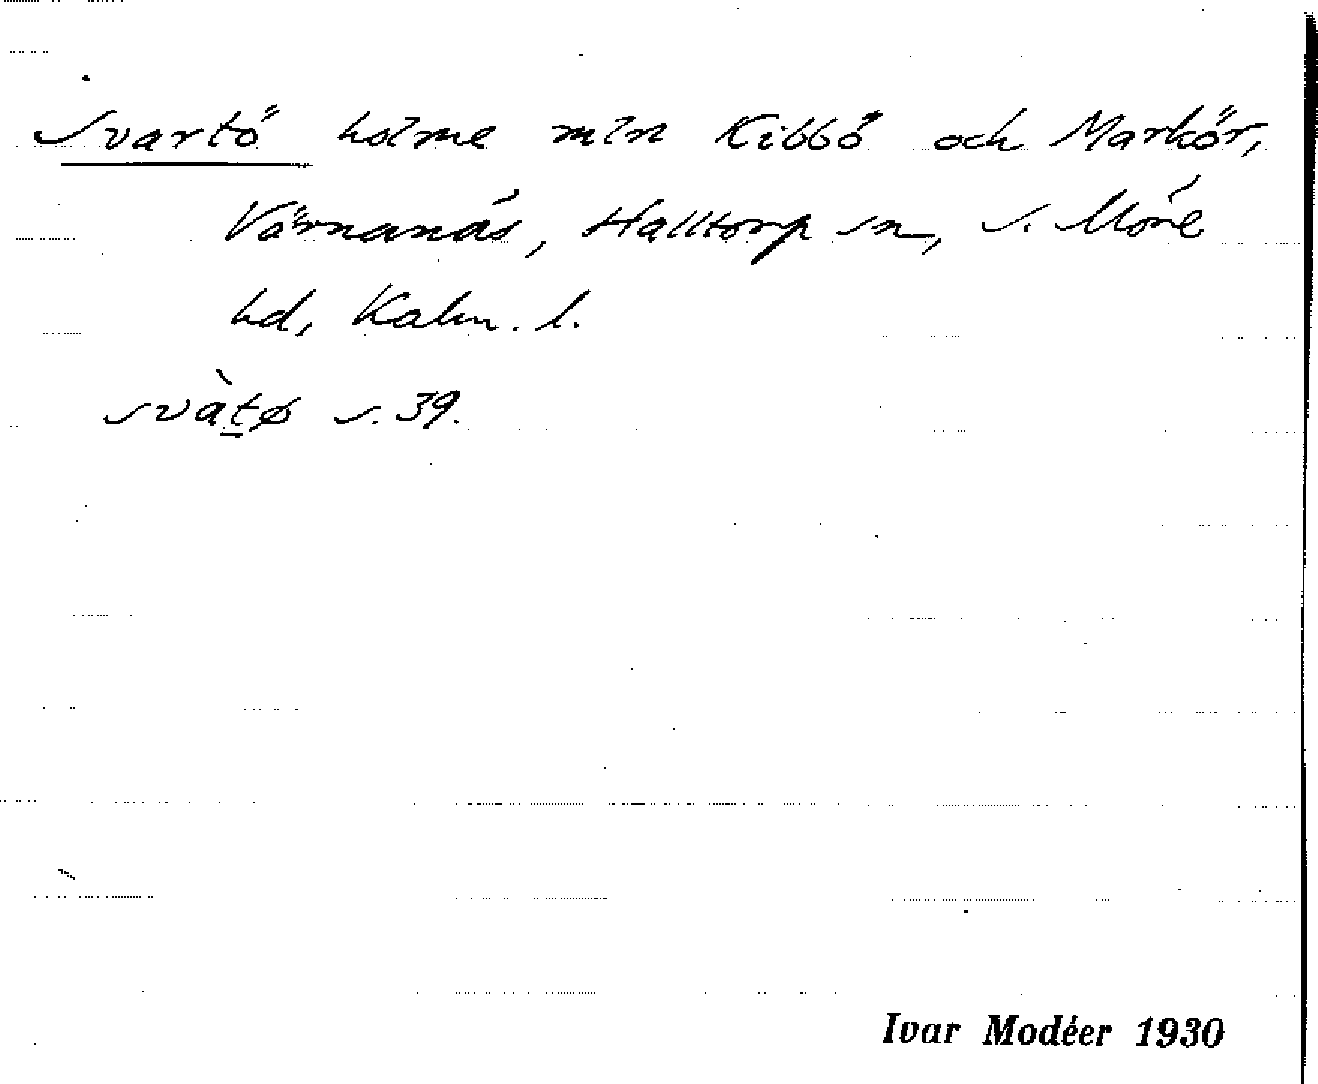 Svartö holme mln Kibbö och Markör,
Värnanäs, Halltorp sn, S. Möre
hd, Kalm. l.
svàt̠ø s. 39.
Ivar Modéer 1930